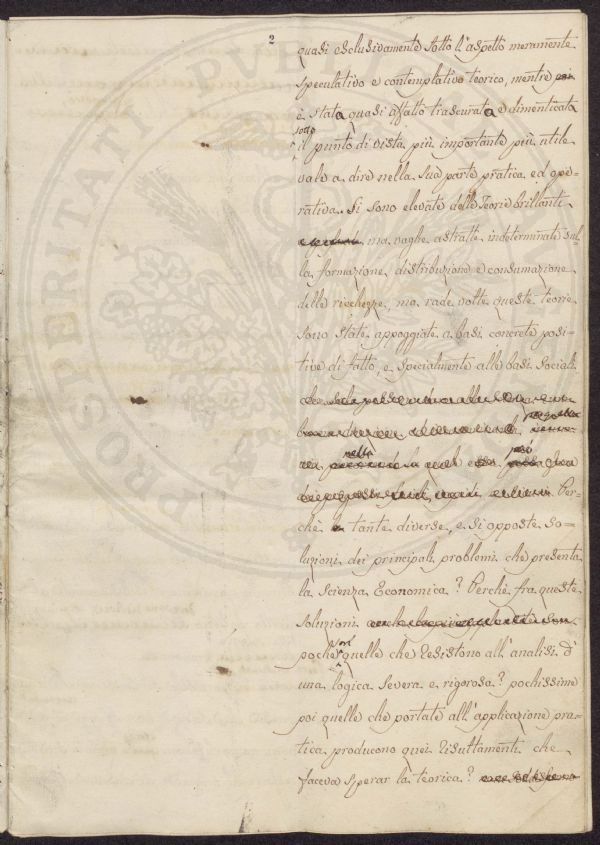 2
quasi esclusivamente sotto l'aspetto meramente
speculativo e contemplativo teorico, mentre
è stata quasi affatto trascurata e dimenticata
sotto
il punto di vista più importante più utile
vale a dire nella sua parte pratica ed ope-
rativa. Si sono elevate delle Teorie brillanti
ma vaghe astratte indeterminate sul-
la formazione, distribuzione e consumazione
delle ricchezze, ma rade volte queste teorie
sono state appoggiate a basi concrete posi-
tive di fatto, e specialmente alle basi sociali.
nella
Per-
chè tante diverse, e sì opposte so-
luzioni dei principali problemi che presenta
la Scienza Economica? Perchè fra queste
soluzioni
son
poche quelle che resistono all'analisi d'
una logica severa e rigorosa? pochissime
poi quelle che portate all'applicazione pra-
tica producono quei risultamenti che
faceva sperar la teorica?
PROSPERITATI PVBLICAE